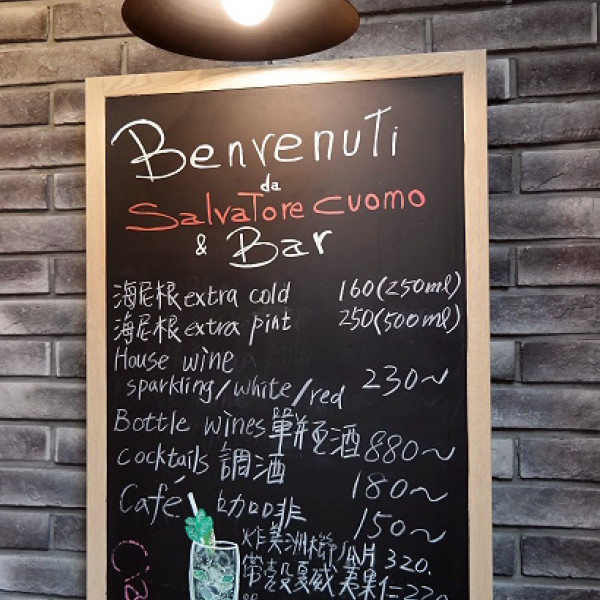 Benvenuti
da
Salvatore Cuomo
& Bar
海尼根 extra cold 160(250ml)
海尼根 extra pint 250(500ml)
House wine
sparkling/white/red 230~
Bottle wines 單瓶酒 880~
Cocktails 調酒 180~
Café 咖啡 150~
炸美洲 320.
帶殼夏威夷果仁 220